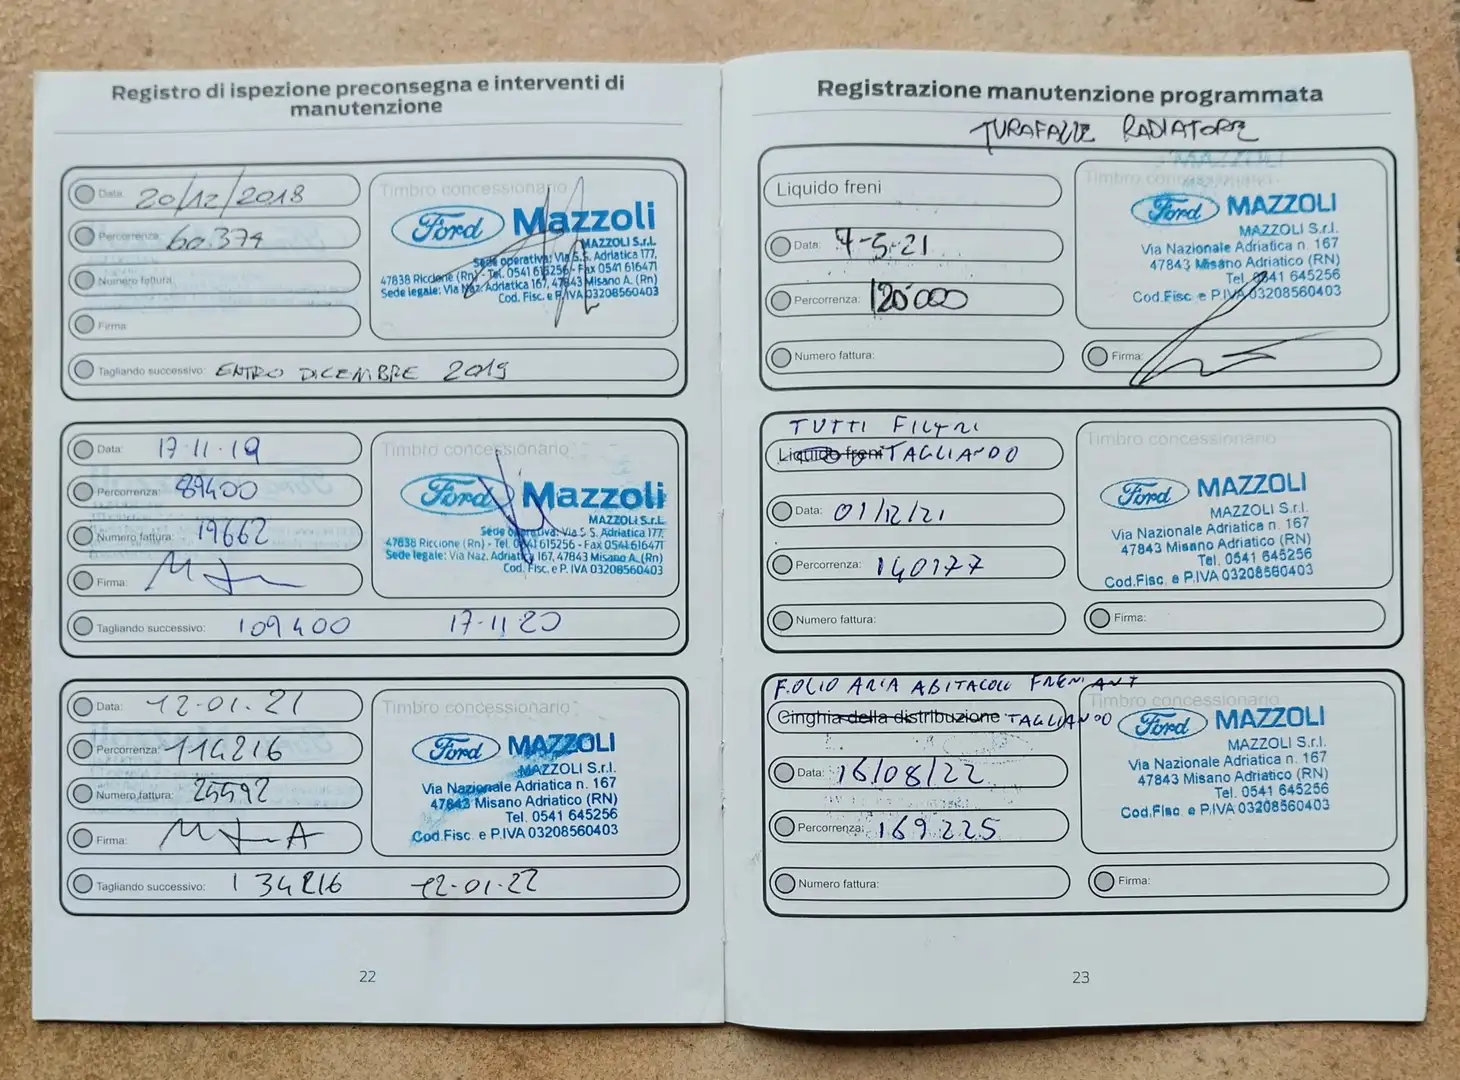 Registro di ispezione preconsegna e interventi di
manutenzione
Data: 20/12/2018
Percorrenza: 60.374
Numero fattura:
Firma:
Timbro concessionario
Ford Mazzoli
MAZZOLI S.r.l.
Sede operativa: Via S.S. Adriatica 177,
47838 Riccione (Rn) - Tel. 0541 615256 - Fax 0541 616471
Sede legale: Via Naz. Adriatica 167, 47843 Misano A. (Rn)
Cod. Fisc. e P.IVA 03208560403
Tagliando successivo: ENTRO DICEMBRE 2019
Data: 17-11-19
Percorrenza: 89400
Numero fattura: 19662
Firma:
Timbro concessionario
Ford Mazzoli
MAZZOLI S.r.l.
Sede operativa: Via S.S. Adriatica 177,
47838 Riccione (Rn) - Tel. 0541 615256 - Fax 0541 616471
Sede legale: Via Naz. Adriatica 167, 47843 Misano A. (Rn)
Cod. Fisc. e P. IVA 03208560403
Tagliando successivo: 109400 17-11-20
Data: 12-01-21
Percorrenza: 114216
Numero fattura: 25592
Firma:
Timbro concessionario
Ford MAZZOLI
MAZZOLI S.r.l.
Via Nazionale Adriatica n. 167
47843 Misano Adriatico (RN)
Tel. 0541 645256
Cod.Fisc. e P.IVA 03208560403
Tagliando successivo: 134216 12-01-22
22
Registrazione manutenzione programmata
TURAFALLE RADIATORE
Liquido freni
Data: 7-5-21
Percorrenza: 120000
Numero fattura:
Timbro concessionario
Ford MAZZOLI
MAZZOLI S.r.l.
Via Nazionale Adriatica n. 167
47843 Misano Adriatico (RN)
Tel. 0541 645256
Cod.Fisc. e P.IVA 03208560403
Firma:
TUTTI FILTRI
Liquido freni TAGLIANDO
Data: 01/12/21
Percorrenza: 140177
Numero fattura:
Timbro concessionario
Ford MAZZOLI
MAZZOLI S.r.l.
Via Nazionale Adriatica n. 167
47843 Misano Adriatico (RN)
Tel. 0541 645256
Cod.Fisc. e P.IVA 03208560403
Firma:
F.OLIO ARIA ABITACOLO FRENI ANT
Cinghia della distribuzione TAGLIANDO
Data: 16/08/22
Percorrenza: 169225
Numero fattura:
Timbro concessionario
Ford MAZZOLI
MAZZOLI S.r.l.
Via Nazionale Adriatica n. 167
47843 Misano Adriatico (RN)
Tel. 0541 645256
Cod.Fisc. e P.IVA 03208560403
Firma:
23